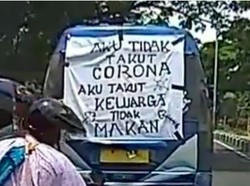 AKU TIDAK
TAKUT
CORONA
AKU TAKUT
KELUARGA
TIDAK
MAKAN